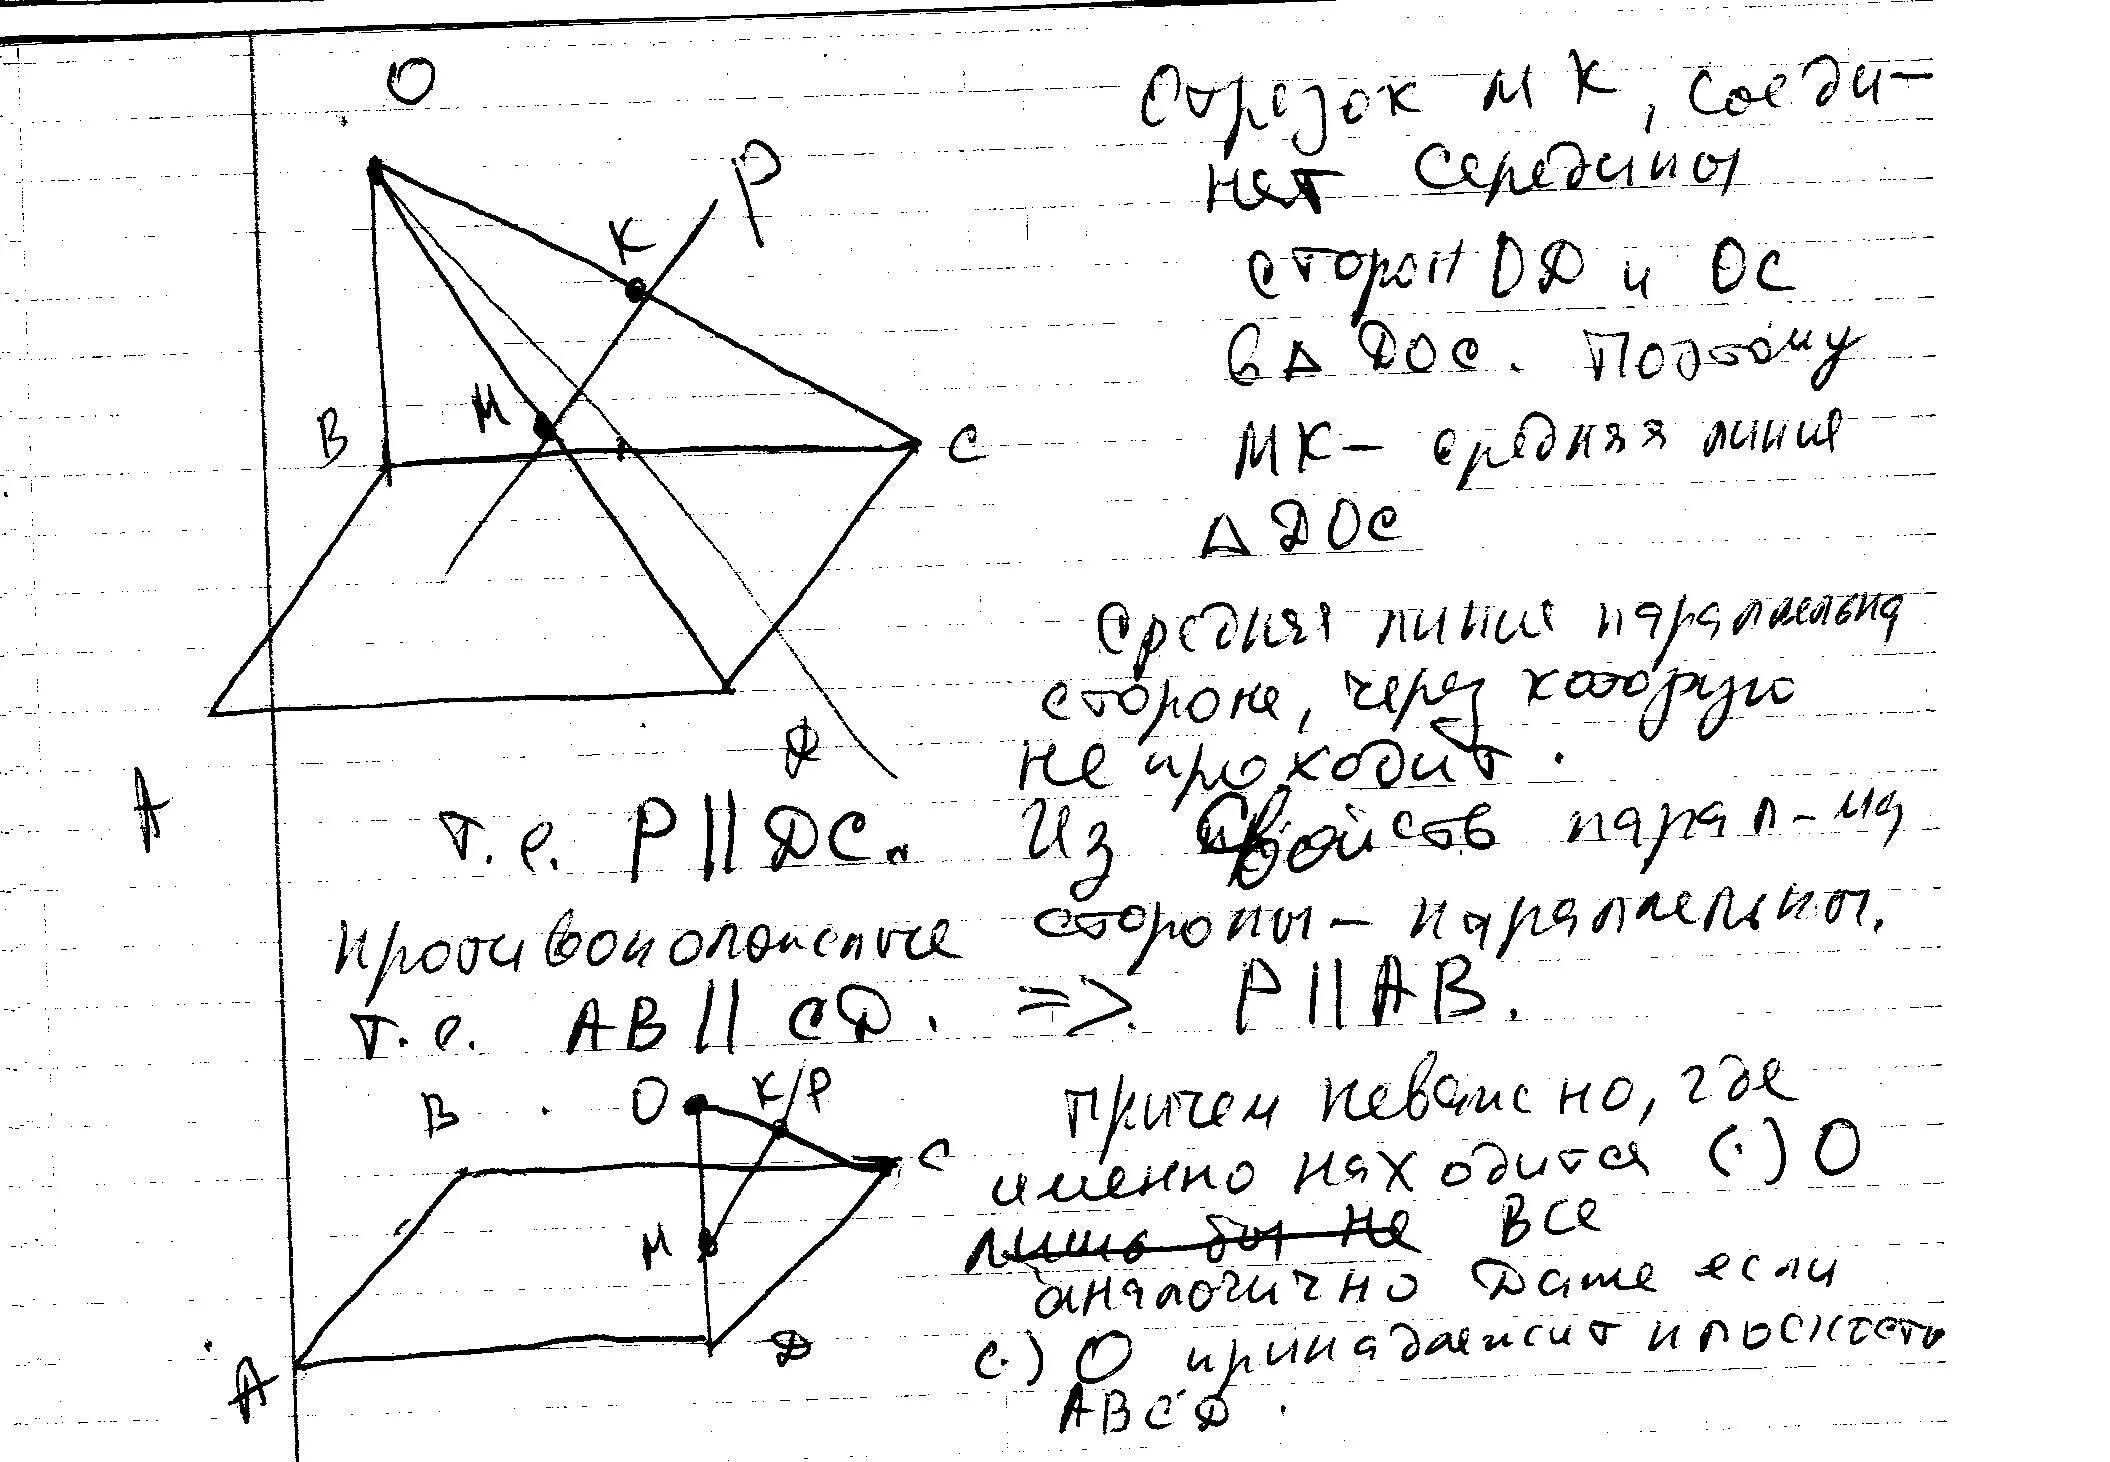 O
P
K
M
B
C
A
D
Отрезок MK, соеди-
нят середины
сторон OD и OC
в △ DOC. Поэтому
MK – средняя линия
△ DOC
Средняя линия параллельна
стороне, через которую
не проходит.
т.е. P || DC. Из свойств парал-ма
противоположные стороны – параллельны.
т.е. AB || CD. => P || AB.
B
O
K
P
C
M
A
D
Причем неважно, где
именно находится (·) O
лишь бы не все
аналогично Даже если
(·) O принадлежит плоскость
ABCD.